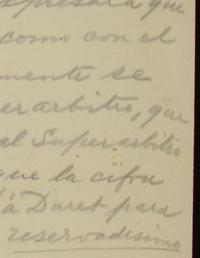 espresara que
como con el
mente se
erarbitro, que
al Superarbitro
que la cifra
á Duret para
reservadisimo